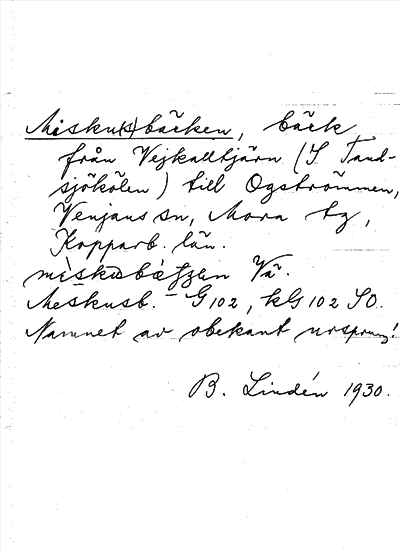 Misku(s)bäcken, bäck
från Vejkalltjärn (S. Tand-
sjökölen) till Ogströmmen,
Venjans sn, Mora tg,
Kopparb. län.
Vä.
Meskusb. – G 102, kG 102 SO.
Namnet av obekant ursprung!
B. Lindén 1930.